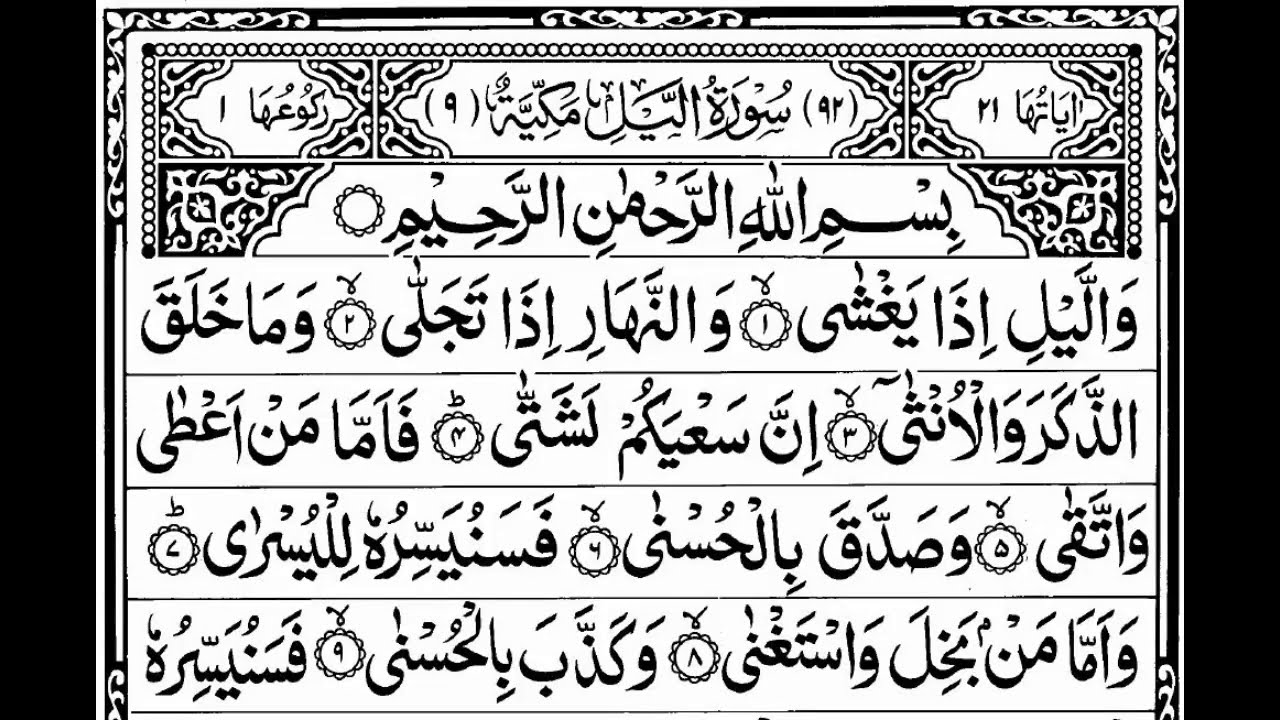 اٰيَاتُهَا ٢١ (٩٢) سُوْرَةُ الَّيْلِ مَكِّيَّةٌ (٩) رُكُوْعُهَا ١
بِسْمِ اللّٰهِ الرَّحْمٰنِ الرَّحِيْمِ
وَالَّيْلِ اِذَا يَغْشٰى ۙ‏١ وَالنَّهَارِ اِذَا تَجَلّٰى ۙ‏٢ وَمَا خَلَقَ
الذَّكَرَ وَالْاُنْثٰىۤ ۙ‏٣ اِنَّ سَعْيَكُمْ لَشَتّٰى ؕ‏٤ فَاَمَّا مَنْ اَعْطٰى
وَاتَّقٰى ۙ‏٥ وَصَدَّقَ بِالْحُسْنٰى ۙ‏٦ فَسَنُيَسِّرُهٗ لِلْيُسْرٰى ؕ‏٧
وَاَمَّا مَنْۢ بَخِلَ وَاسْتَغْنٰى ۙ‏٨ وَكَذَّبَ بِالْحُسْنٰى ۙ‏٩ فَسَنُيَسِّرُهٗ